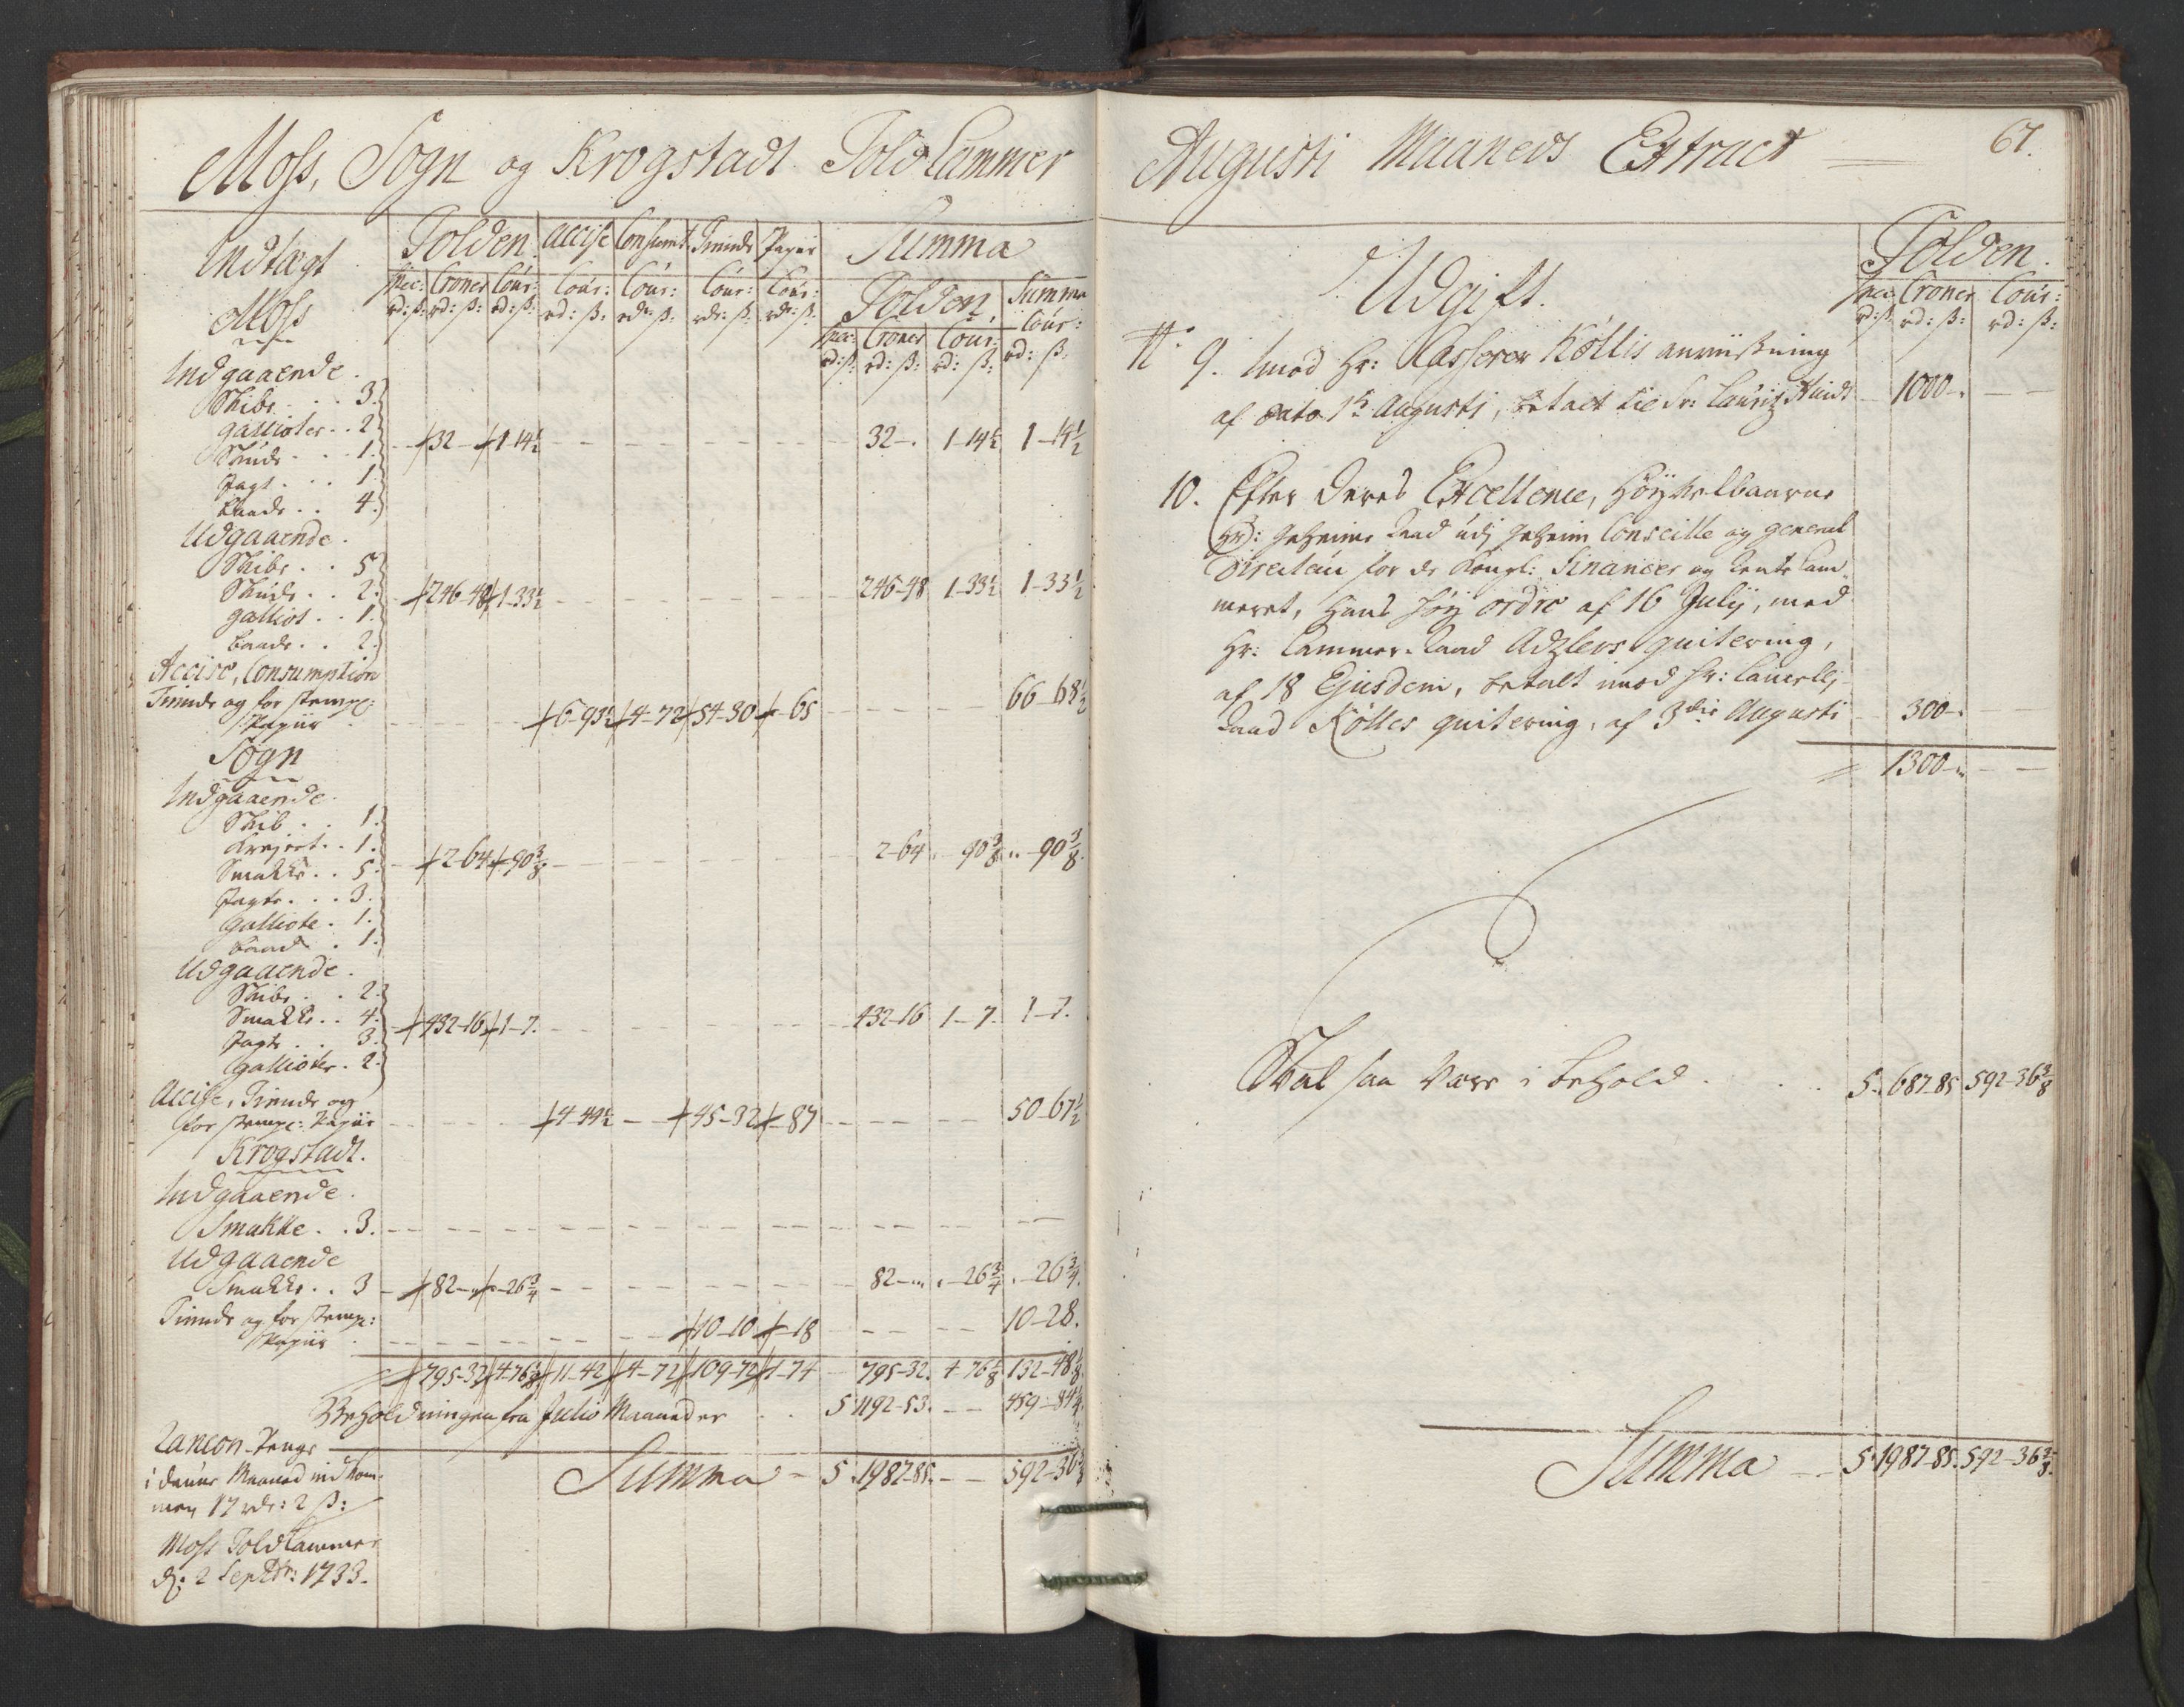 Moss, Sogn og Krogstadt Told Cammer
Indtægt
Tolden
Accise
Consumt:
Tiende
Papiir
Summa
Spec:
Croner
Cour:
Cour:
Cour:
Cour:
Cour:
Tolden.
Summa
Cour:
Spec:
Croner
Cour:
rd: ß: rd: ß: rd: ß: rd: ß: rdr: ß: rdr: ß: rdr: ß:
rd: ß: rd: ß: rd: ß: rd: ß:
Moss
Indgaaende.
Skibe . . 3.
Gallioter . . 2
Skude . . 1. 32 - 1-14½ 32-. 1-14½ 1-14½
Jagt . . . 1
Baade . . 4.
Udgaaende.
Skibe . . 5
Skude . . 2. 246-48 1-33½ 246-48 1-33½ 1-33½
Galliot . . 1.
Baade . . 2.
Accise, Consumption
Tiende og for stempl:
Papiir 6-93½ 4-72 54-30 - 65 66-68½
Sogn
Indgaaende.
Skib . . 1.
Krejert . . 1.
Smakke . . 5. 2-64 -90⅜ 2-64 . -90⅜ .. -90⅜.
Jagte . . . 3.
Galliote . 1.
Baad . 1.
Udgaaende.
Skibe . . 2.
Smakke . . 4. 432-16 1-7. 432-16 1-7. 1-7.
Jagte . . 3.
Gallioter . 2.
Accise, Tiende og
for stempl: Papiir 4-44½ 45-32 - 87 50-67½
Krogstadt.
Indgaaende.
Smakke . . 3.
Udgaaende
Smakke . . 3 82-.. -26¾ 82-... . -26¾ . -26¾.
Tiende og for stempl:
Papiir 10-10 -18 10-28.
795-32 4-76⅛ 11-42 4-72 109-72 1-74 795-32. 4-76⅛ 132-48⅛
Beholdningen fra Julio Maaneder . . 5 1192-53. - - 459-84¼
Rancon-Penge
i denne Maaned ind kom-
men 17 rdr: 2 ß:
Summa - 5. 1987-85. - - 592-36⅜
Moss Told Cammer
d: 2 Septbr: 1733.
Augusti Maaneds Extract
67.
Udgift.
Tolden.
Spec: Croner Cour:
rd: ß: rd: ß: rd: ß:
N. 9. Imod Hr: Casserer Köllis anviisning
af dato 1te Augusti, betalt til Sr: Lauritz Hvidt 1000-.
10. Efter Deres Excellence, Høyvelbaarne
Hr: Geheime Raad udj Geheim Conseille og General
Directeur for de Kongl: Finances og Rente Cam
meret, Hans Høy ordre af 16 July, med
Hr: Cammer-Raad Adzlers quitering,
af 18 Ejusdem, betalt imod Hr: Cancellj
Raad Köttes quitering, af 3die Augusti 300-.
1300-..
Skal saa være i behold . . . 5. 687-85 592-36⅜
Summa - - 5. 1987-85. 592-36⅜.